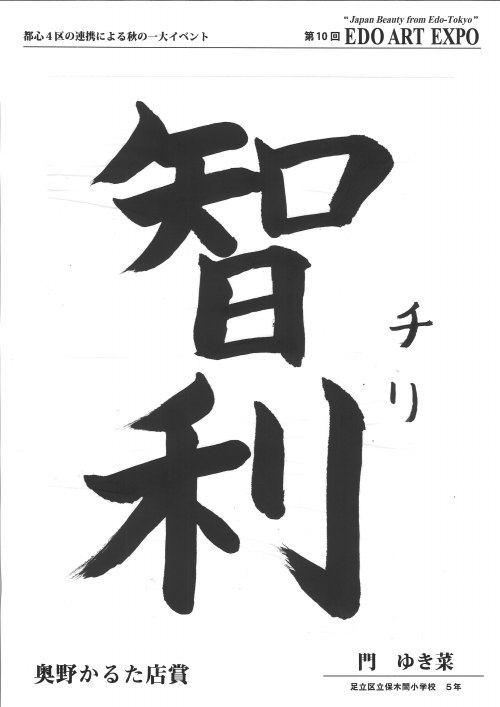 都心4区の連携による秋の一大イベント
"Japan Beauty from Edo-Tokyo"
第10回 EDO ART EXPO
智利
チリ
奥野かるた店賞
門 ゆき菜
足立区立保木間小学校 5年